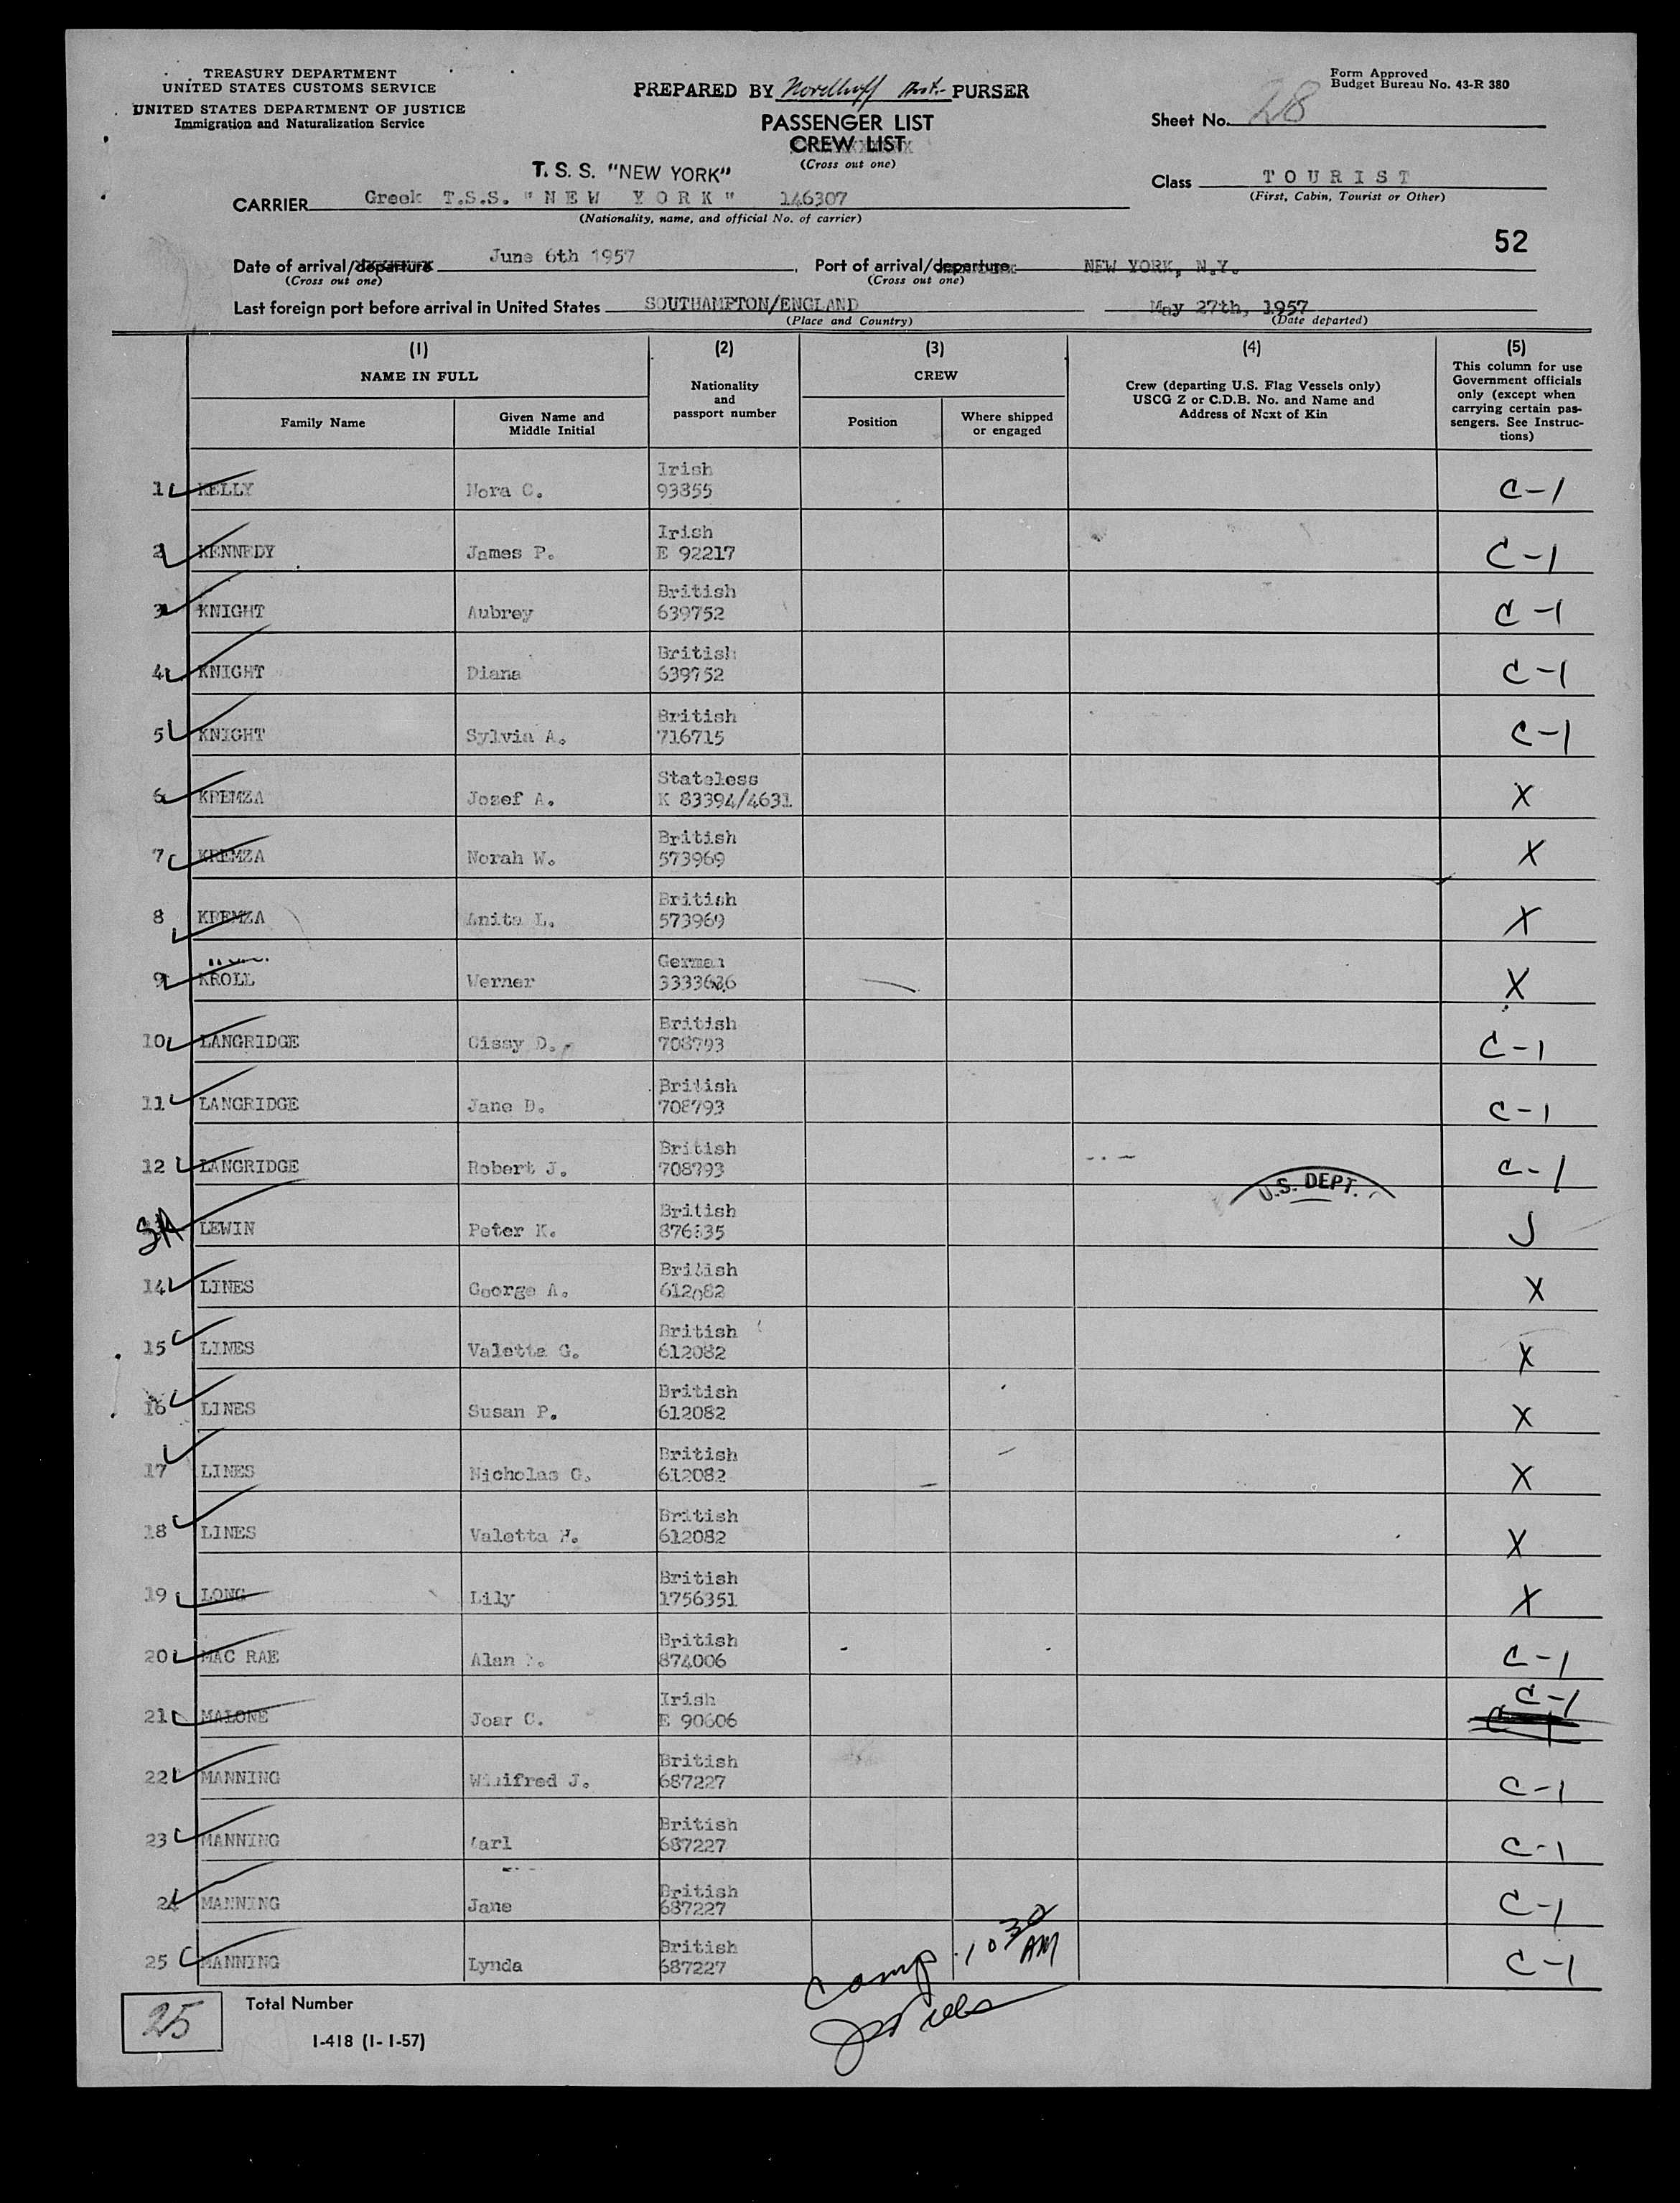 TREASURY DEPARTMENT
UNITED STATES CUSTOMS SERVICE
UNITED STATES DEPARTMENT OF JUSTICE
Immigration and Naturalization Service
PREPARED BY PURSER
PASSENGER LIST
CREW LIST
(Cross out one)
Form Approved
Budget Bureau No. 43-R 380
Sheet No. 28
T. S. S. "NEW YORK"
CARRIER Greek T.S.S. "NEW YORK" 146307
(Nationality, name, and official No. of carrier)
Class TOURIST
(First, Cabin, Tourist or Other)
52
Date of arrival/departure June 6th 1957, Port of arrival/departure NEW YORK, N.Y.
(Cross out one) (Cross out one)
Last foreign port before arrival in United States SOUTHAMPTON/ENGLAND May 27th, 1957
(Place and Country) (Date departed)
(1) (2) (3) (4) (5)
NAME IN FULL
Family Name
Given Name and Middle Initial
Nationality and passport number
CREW
Position
Where shipped or engaged
Crew (departing U.S. Flag Vessels only)
USCG Z or C.D.B. No. and Name and
Address of Next of Kin
This column for use
Government officials
only (except when
carrying certain pas-
sengers. See Instruc-
tions)
1 KELLY Nora C. Irish 93855 C-1
2 KENNEDY James P. Irish E 92217 C-1
3 KNIGHT Aubrey British 639752 C-1
4 KNIGHT Diana British 639752 C-1
5 KNIGHT Sylvia A. British 716715 C-1
6 KREMZA Jozef A. Stateless K 83394/4631 X
7 KREMZA Norah W. British 573969 X
8 KREMZA Anita L. British 573969 X
9 KROLL Werner German X
10 LANGRIDGE Cissy D. British 708793 C-1
11 LANGRIDGE Jane D. British 708793 C-1
12 LANGRIDGE Robert J. British 708793 C-1
U.S. DEPT.
SA LEWIN Peter K. British J
14 LINES George A. British 612082 X
15 LINES Valetta G. British 612082 X
16 LINES Susan P. British 612082 X
17 LINES Nicholas G. British 612082 X
18 LINES Valetta British 612082 X
19 LONG Lily British 1756351 X
20 MAC RAE Alan British 874006 C-1
21 MALONE Joan C. Irish E 90606 C-1
22 MANNING Winifred J. British 687227 C-1
23 MANNING British 687227 C-1
24 MANNING Jane British 687227 C-1
25 MANNING Lynda British 687227 C-1
Comp 10 30 AM
25 Total Number
I-418 (1-1-57)